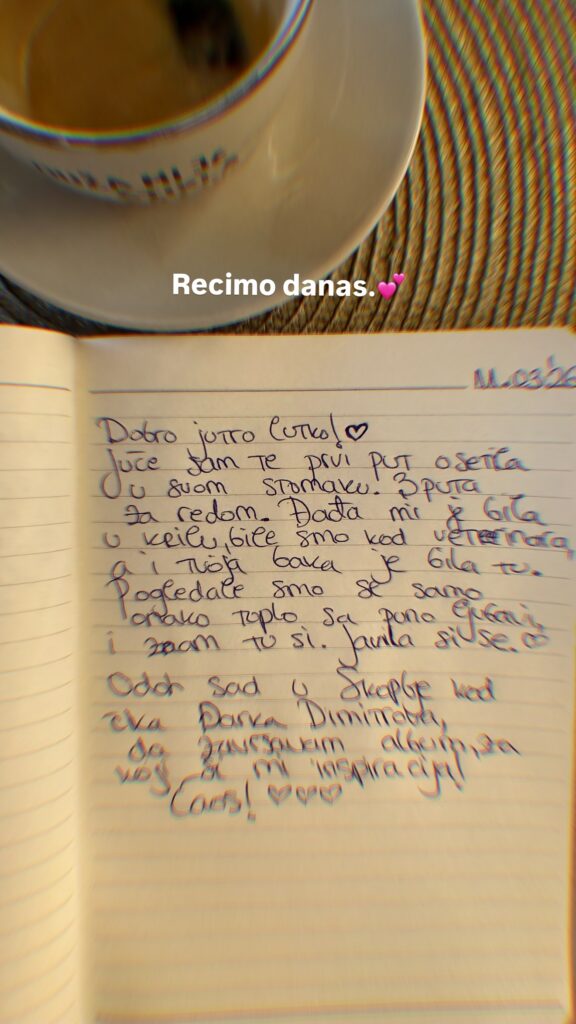 Recimo danas.💕
11.03'26
Dobro jutro lutko! ♡
Juče sam te prvi put osetila
u svom stomaku. 3 puta
za redom. Đađa mi je bila
u krilu, bile smo kod veterinara,
a i tvoja baka je bila tu.
Pogledale smo se samo
onako toplo sa puno ljubavi,
i znam tu si. Javila si se. ♡
Odoh sad u Skoplje kod
čika Darka Dimitrova,
da završavam album, za
koji si mi inspiracija!
♡♡♡